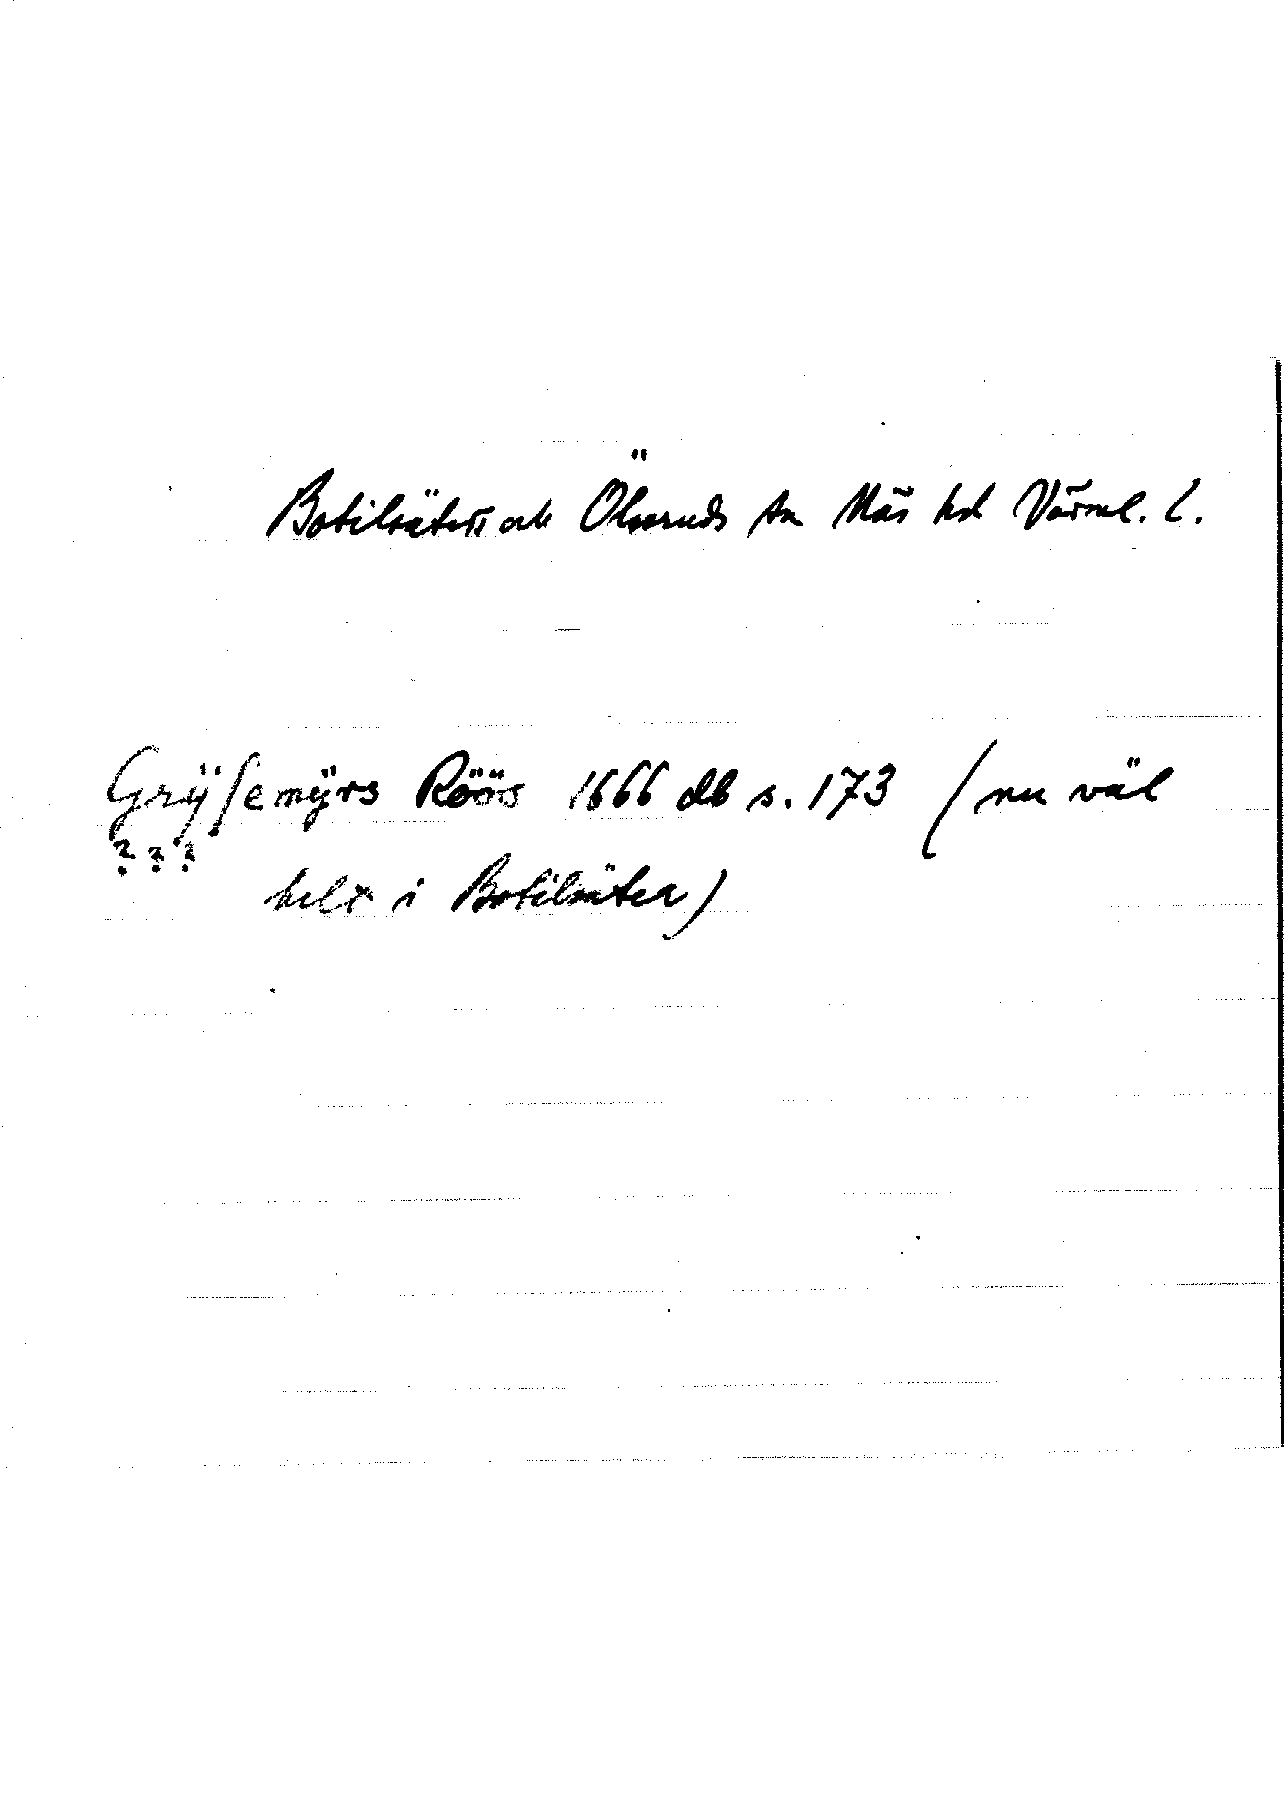 Botilsäters och Ölseruds sn Näs hd Värml. l.
Grÿsemÿrs Röös 1666 db s. 173 (nu väl
? ? ?
helt i Botilsäter)